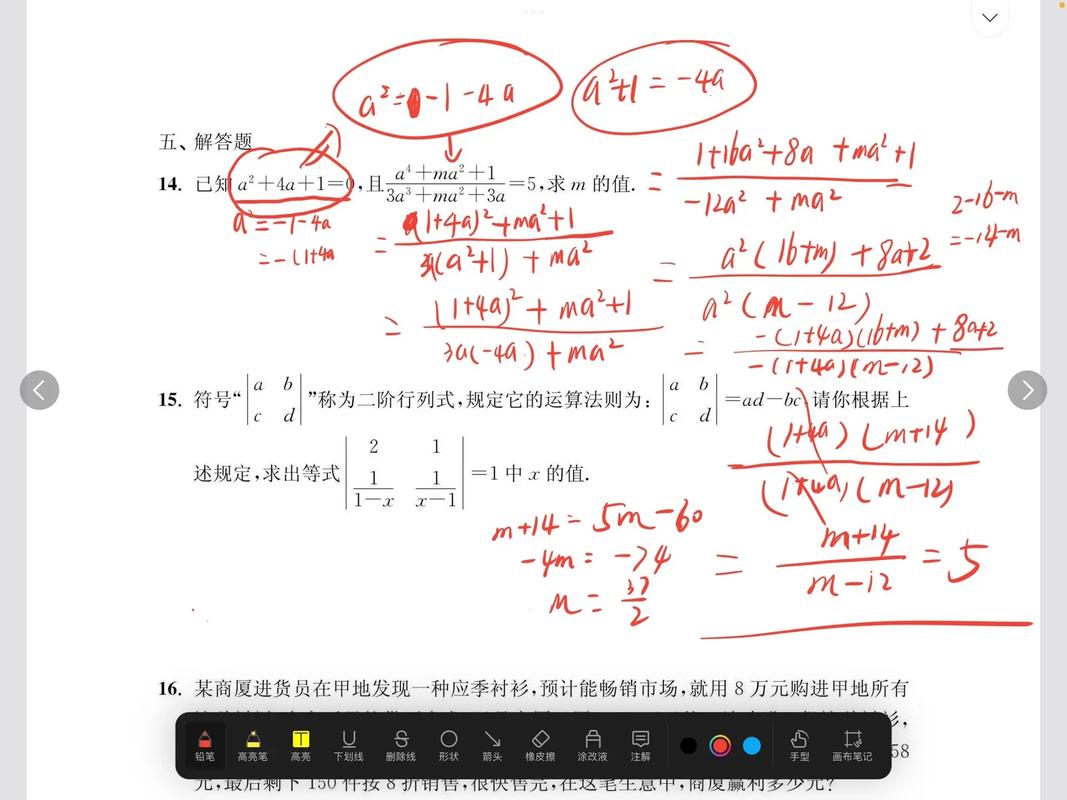 a²=-1-4a
a²+1=-4a
五、解答题
14. 已知 a²+4a+1=0,且 (a⁴+ma²+1)/(3a³+ma²+3a)=5,求 m 的值.
= (1+16a²+8a+ma²+1)/(-12a²+ma²)
a²=-1-4a
=-(1+4a
= ((1+4a)²+ma²+1)/(3a(a²+1)+ma²)
= ((1+4a)²+ma²+1)/(3a(-4a)+ma²)
2-16-m
=-14-m
= (a²(16+m)+8a+2)/(a²(m-12))
= (-(1+4a)(16+m)+8a+2)/(-(1+4a)(m-12))
15. 符号“|a b c d|”称为二阶行列式,规定它的运算法则为:|a b c d|=ad-bc,请你根据上
述规定,求出等式|2 1 1/(1-x) 1/(x-1)|=1中 x 的值.
((1+4a)(m+14))/((1+4a)(m-12))
= (m+14)/(m-12) = 5
m+14=5m-60
-4m=-74
m=37/2
16. 某商厦进货员在甲地发现一种应季衬衫,预计能畅销市场,就用 8 万元购进甲地所有
衫,
58
元,最后剩下 150 件按 8 折销售,很快售完,在这笔生意中,商厦赢利多少元?
铅笔 高亮笔 高亮 下划线 删除线 形状 箭头 橡皮擦 涂改液 注解 手型 画布笔记